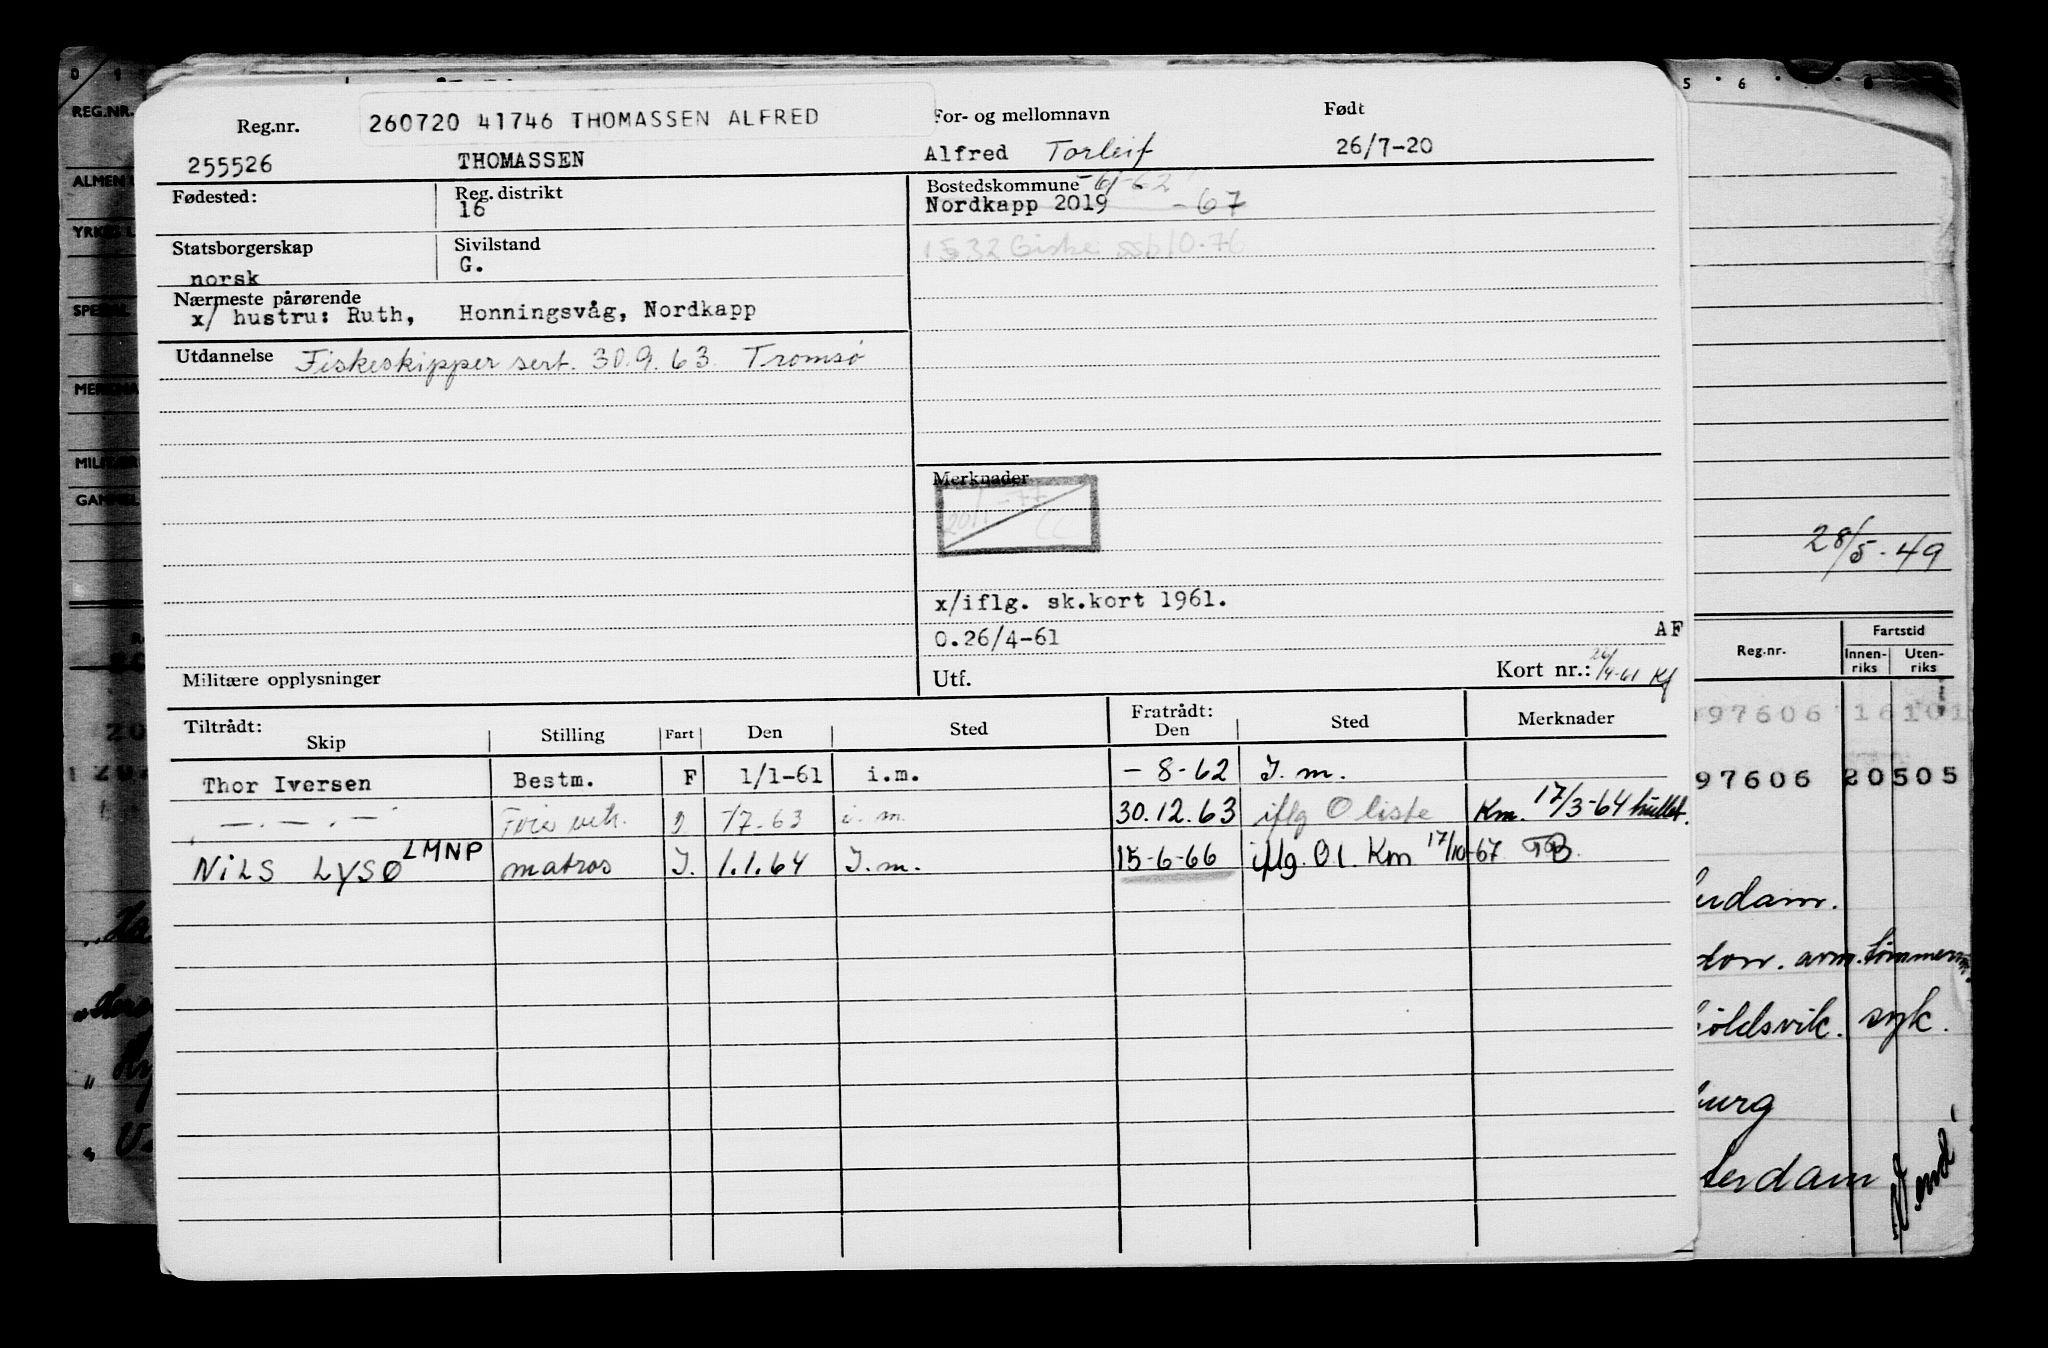 260720 41746 THOMASSEN ALFRED
Reg.nr. For- og mellomnavn Født
255526 THOMASSEN Alfred Torleif 26/7-20
Fødested: Reg. distrikt Bostedskommune -61-62
16 Nordkapp 2019 -67
Statsborgerskap Sivilstand 1532 Giske ssb 10-76
norsk G.
Nærmeste pårørende
x/ hustru: Ruth, Honningsvåg, Nordkapp
Utdannelse Fiskeskipper sert. 30.9.63. Tromsø
Merknader
x/iflg. sk.kort 1961.
O.26/4-61 AF
Militære opplysninger Utf. Kort nr.: 26/4-61 Kf
Tiltrådt: Fratrådt:
Skip Stilling Fart Den Sted Den Sted Merknader
Thor Iversen Bestm. F 1/1-61 i.m. - 8-62 I.m.
— . — . — /7-63 i.m. 30.12.63 iflg O liste Km. 17/3-64 hullet.
NiLS LYSØ LMNP matros I. 1.1.64 I.m. 15-6-66 iflg. Ol. Km 17/10-67 TB.
REG.NR.
28/5-49
Reg.nr. Fartstid
Innen-riks Uten-riks
97606 16101
97606 20505
udam.
arm. tømmerm.
öldsvik. syk.
burg
terdam
Vend!